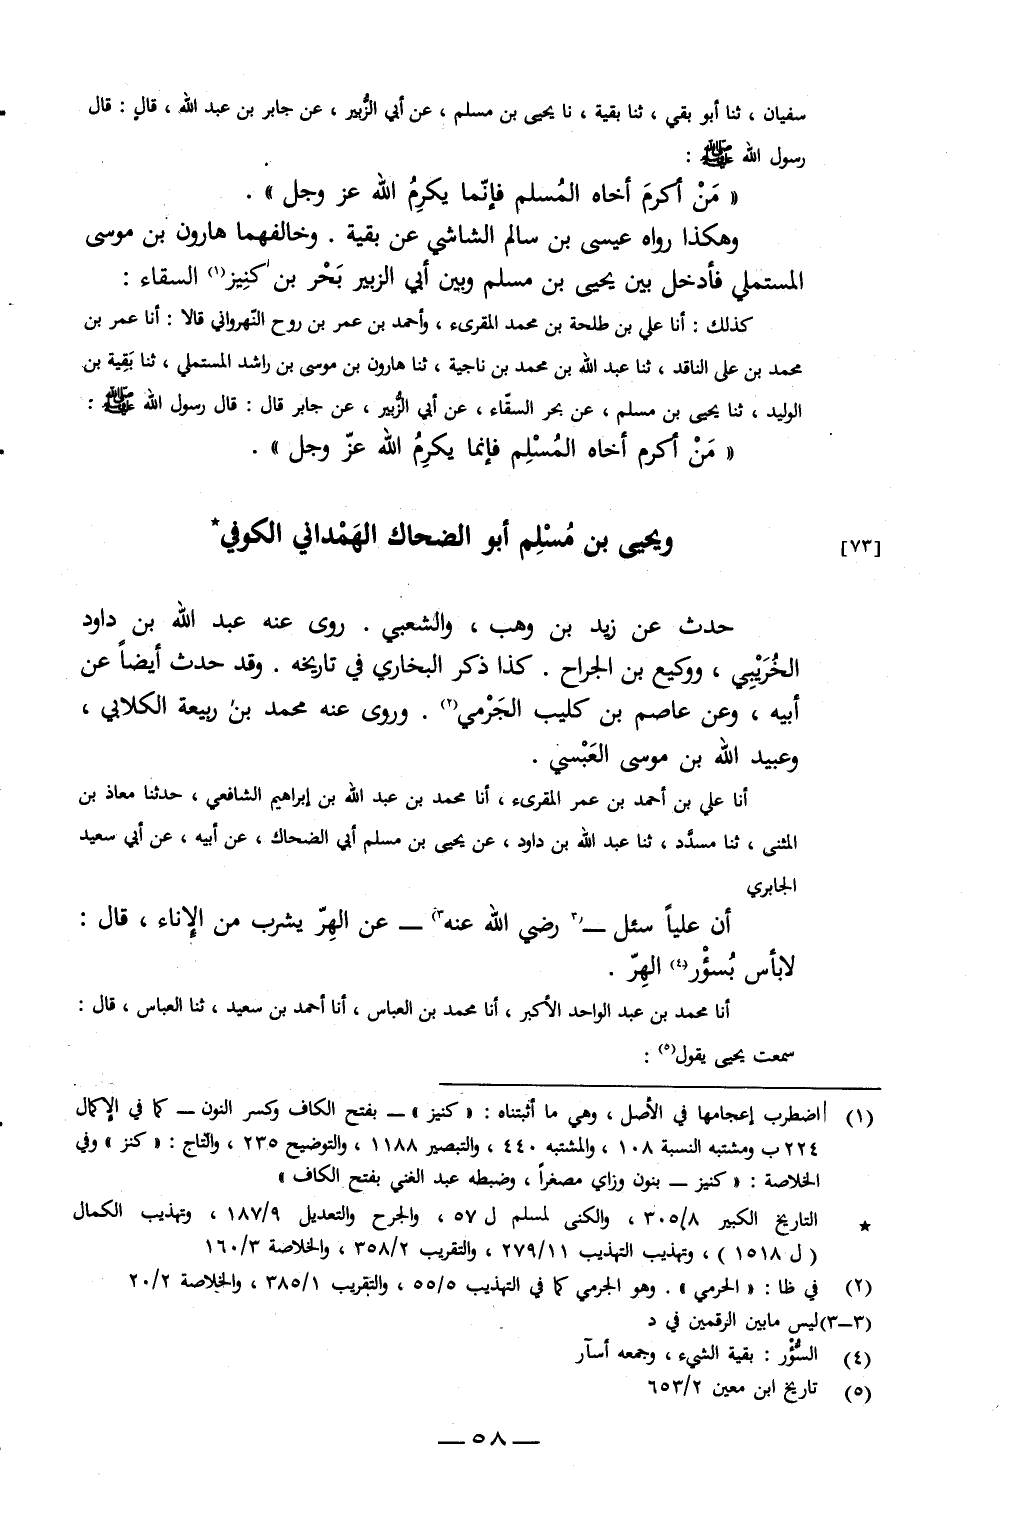 سفيان ، ثنا أبو بقي ، ثنا بقية ، نا يحيى بن مسلم ، عن أبي الزُّبير ، عن جابر بن عبد الله ، قال : قال
رسول الله ﷺ :
« مَنْ أكرمَ أخاه المُسلم فإنّما يكرِمُ الله عز وجل » .
وهكذا رواه عيسى بن سالم الشاشي عن بقية . وخالفهما هارون بن موسى
المستملي فأدخل بين يحيى بن مسلم وبين أبي الزبير بَحْر بن كَنِيز(١) السقاء :
كذلك : أنا علي بن طلحة بن محمد المقرىء ، وأحمد بن عمر بن روح النَّهرواني قالا : أنا عمر بن
محمد بن علي الناقد ، ثنا عبد الله بن محمد بن ناجية ، ثنا هارون بن موسى بن راشد المستملي ، ثنا بَقِية بن
الوليد ، ثنا يحيى بن مسلم ، عن بحر السقّاء ، عن أبي الزُّبير ، عن جابر قال : قال رسول الله ﷺ :
« مَنْ أكرم أخاه المُسْلِم فإنما يكرِمُ الله عزّ وجل » .
[٧٣] ويحيى بن مُسْلِم أبو الضحاك الهَمْداني الكوفي*
حدث عن زيد بن وهب ، والشعبي . روى عنه عبد الله بن داود
الخُرَيْبِي ، ووكيع بن الجراح . كذا ذكر البخاري في تاريخه . وقد حدث أيضاً عن
أبيه ، وعن عاصم بن كليب الجَرْمي(٢) . وروى عنه محمد بن ربيعة الكلابي ،
وعبيد الله بن موسى العَبْسي .
أنا علي بن أحمد بن عمر المقرىء ، أنا محمد بن عبد الله بن إبراهيم الشافعي ، حدثنا معاذ بن
المثنى ، ثنا مسدَّد ، ثنا عبد الله بن داود ، عن يحيى بن مسلم أبي الضحاك ، عن أبيه ، عن أبي سعيد
الجابري
أن علياً سئل ــ (٣ رضي الله عنه ٣) ــ عن الهِرّ يشرب من الإناء ، قال :
لابأس بُسؤْر(٤) الهِرّ .
أنا محمد بن عبد الواحد الأكبر ، أنا محمد بن العباس ، أنا أحمد بن سعيد ، ثنا العباس ، قال :
سمعت يحيى يقول(٥) :
(١) اضطرب إعجامها في الأصل ، وهي ما أثبتناه : « كنيز » ــ بفتح الكاف وكسر النون ــ كما في الإكمال
٢٢٤ ب ومشتبه النسبة ١٠٨ ، والمشتبه ٤٤٠ ، والتبصير ١١٨٨ ، والتوضيح ٢٣٥ ، والتاج : « كنز » وفي
الخلاصة : « كنيز ــ بنون وزاي مصغراً ، وضبطه عبد الغني بفتح الكاف »
★ التاريخ الكبير ٣٠٥/٨ ، والكنى لمسلم ل ٥٧ ، والجرح والتعديل ١٨٧/٩ ، وتهذيب الكمال
( ل ١٥١٨ ) ، وتهذيب التهذيب ٢٧٩/١١ ، والتقريب ٣٥٨/٢ ، والخلاصة ١٦٠/٣
(٢) في ظا : « الحرمي » . وهو الجرمي كما في التهذيب ٥٥/٥ ، والتقريب ٣٨٥/١ ، والخلاصة ٢٠/٢
(٣–٣) ليس مابين الرقمين في د
(٤) السُّؤْر : بقية الشيء ، وجمعه أسآر
(٥) تاريخ ابن معين ٦٥٣/٢
ــ ٥٨ ــ